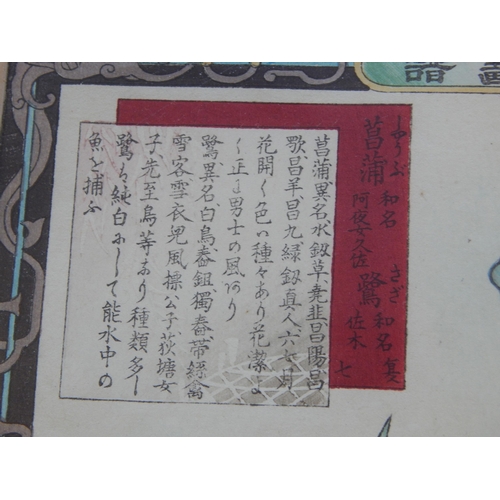 菖蒲 和名 阿夜女久佐 鷺 和名 佐木
しやうぶ
さぎ
七
菖蒲異名水釼草、尭韭、昌陽、昌
歜、昌羊、昌九、緑釼真人、六七月
花開く色ハ種々あり花潔よ
く正しく男士の風あり
鷺異名、白鳥、舂鉏、獨舂、帯絲禽
雪客、雪衣児、風標公子、荻塘女
子、先至鳥等あり種類多し
鷺ハ純白にして能水中の
魚を捕ふ